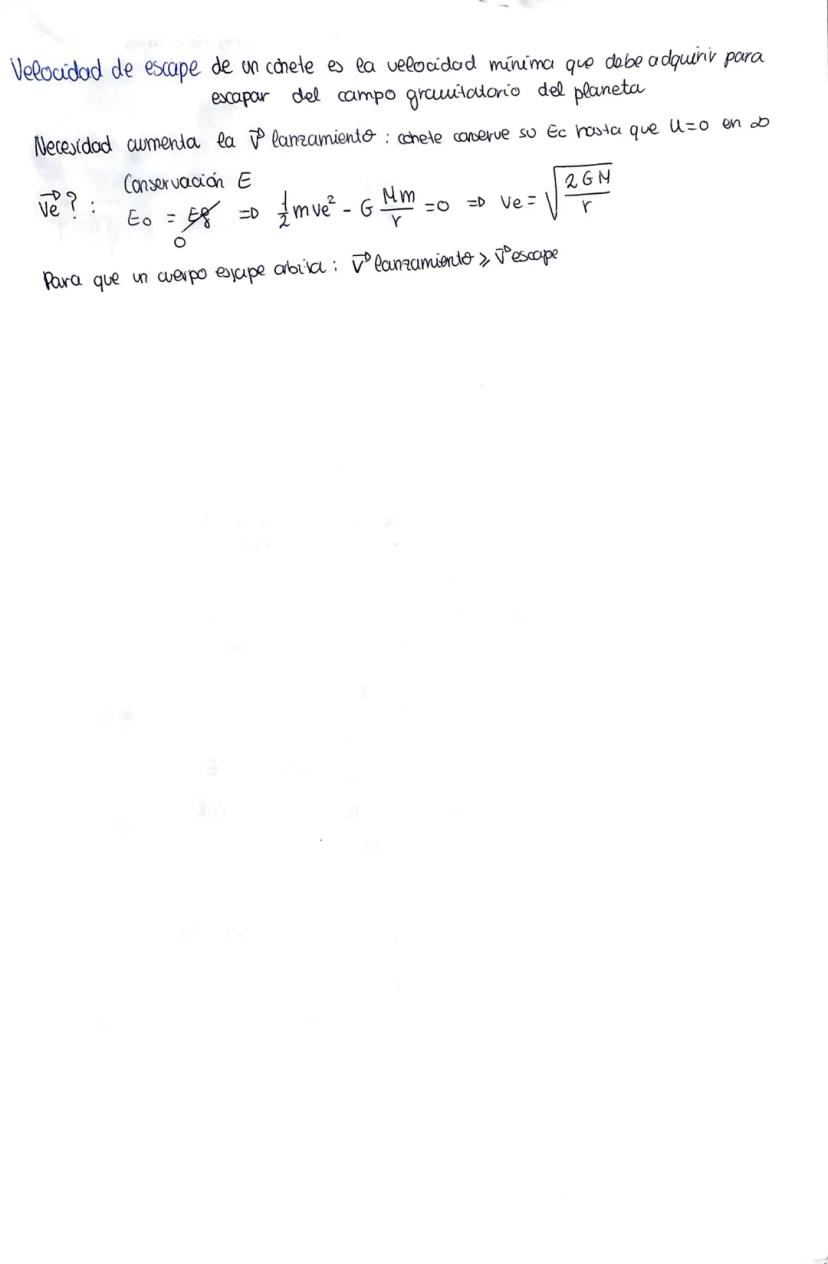 Velocidad de escape de un cohete es la velocidad mínima que debe adquirir para
escapar del campo gravitatorio del planeta
Necesidad aumenta la v⃗ lanzamiento : cohete conserve su Ec hasta que U=0 en ∞
Conservación E
v⃗e ? : E₀ = Ef ⇒ ½ m ve² - G Mm/r = 0 ⇒ ve = √(2GM/r)
0
Para que un cuerpo escape orbita : v⃗ lanzamiento ⩾ v⃗ escape